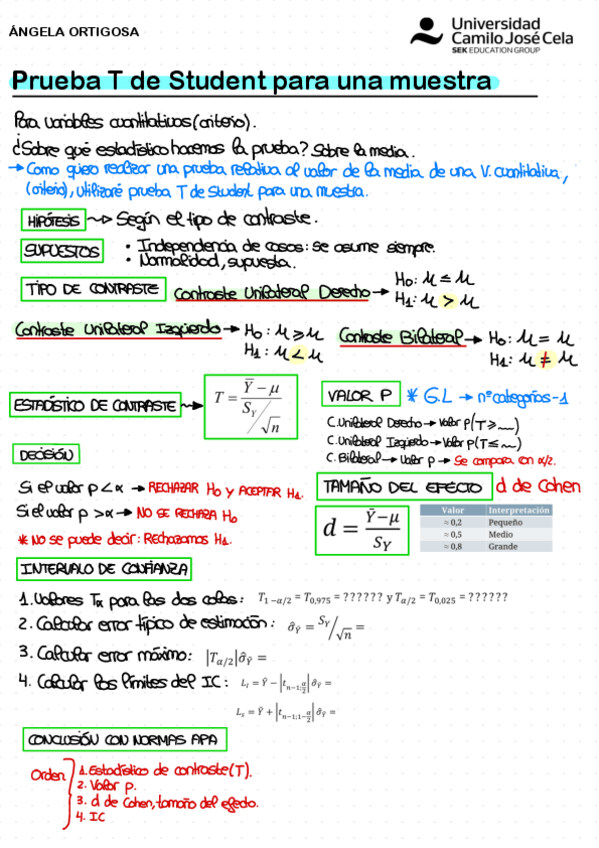 ÁNGELA ORTIGOSA
Universidad
Camilo José Cela
SEK EDUCATION GROUP
Prueba T de Student para una muestra
Para variables cuantitativas (criterio).
¿Sobre qué estadístico hacemos la prueba? Sobre la media.
→ Como quiero realizar una prueba relativa al valor de la media de una V. cuantitativa,
(criterio), utilizaré prueba T de Student para una muestra.
HIPÓTESIS ~> Según el tipo de contraste.
SUPUESTOS
• Independencia de casos: se asume siempre.
• Normalidad, supuesta.
TIPO DE CONTRASTE
Contraste Unilateral Derecho →
H₀: μ ≤ μ
H₁: μ > μ
Contraste Unilateral Izquierdo →
H₀: μ ≥ μ
H₁: μ < μ
Contraste Bilateral →
H₀: μ = μ
H₁: μ ≠ μ
ESTADÍSTICO DE CONTRASTE ~>
T = (Ȳ − μ) / (S_Y / √n)
VALOR P * G.L → nº categorías -1
C. Unilateral Derecho → Valor p (T ≥ ~)
C. Unilateral Izquierdo → Valor p (T ≤ ~)
C. Bilateral → Valor p → Se compara con α/2.
DECISIÓN
Si el valor p < α → RECHAZAR H₀ y ACEPTAR H₁.
Si el valor p > α → NO SE RECHAZA H₀
* No se puede decir: Rechazamos H₁.
TAMAÑO DEL EFECTO d de Cohen
d = (Ȳ−μ) / S_Y
Valor Interpretación
≈ 0,2 Pequeño
≈ 0,5 Medio
≈ 0,8 Grande
INTERVALO DE CONFIANZA
1. Valores Tα para las dos colas: T₁₋α/₂ = T₀,₉₇₅ = ?????? y Tα/₂ = T₀,₀₂₅ = ??????
2. Calcular error típico de estimación: σ̂_Ȳ = S_Y / √n =
3. Calcular error máximo: |Tα/₂| σ̂_Ȳ =
4. Calcular los límites del IC: Lᵢ = Ȳ − |t_{n−1; α/2}| σ̂_Ȳ =
Lₛ = Ȳ + |t_{n−1; 1−α/2}| σ̂_Ȳ =
CONCLUSIÓN CON NORMAS APA
Orden
1. Estadístico de contraste (T).
2. Valor p.
3. d de Cohen, tamaño del efecto.
4. IC